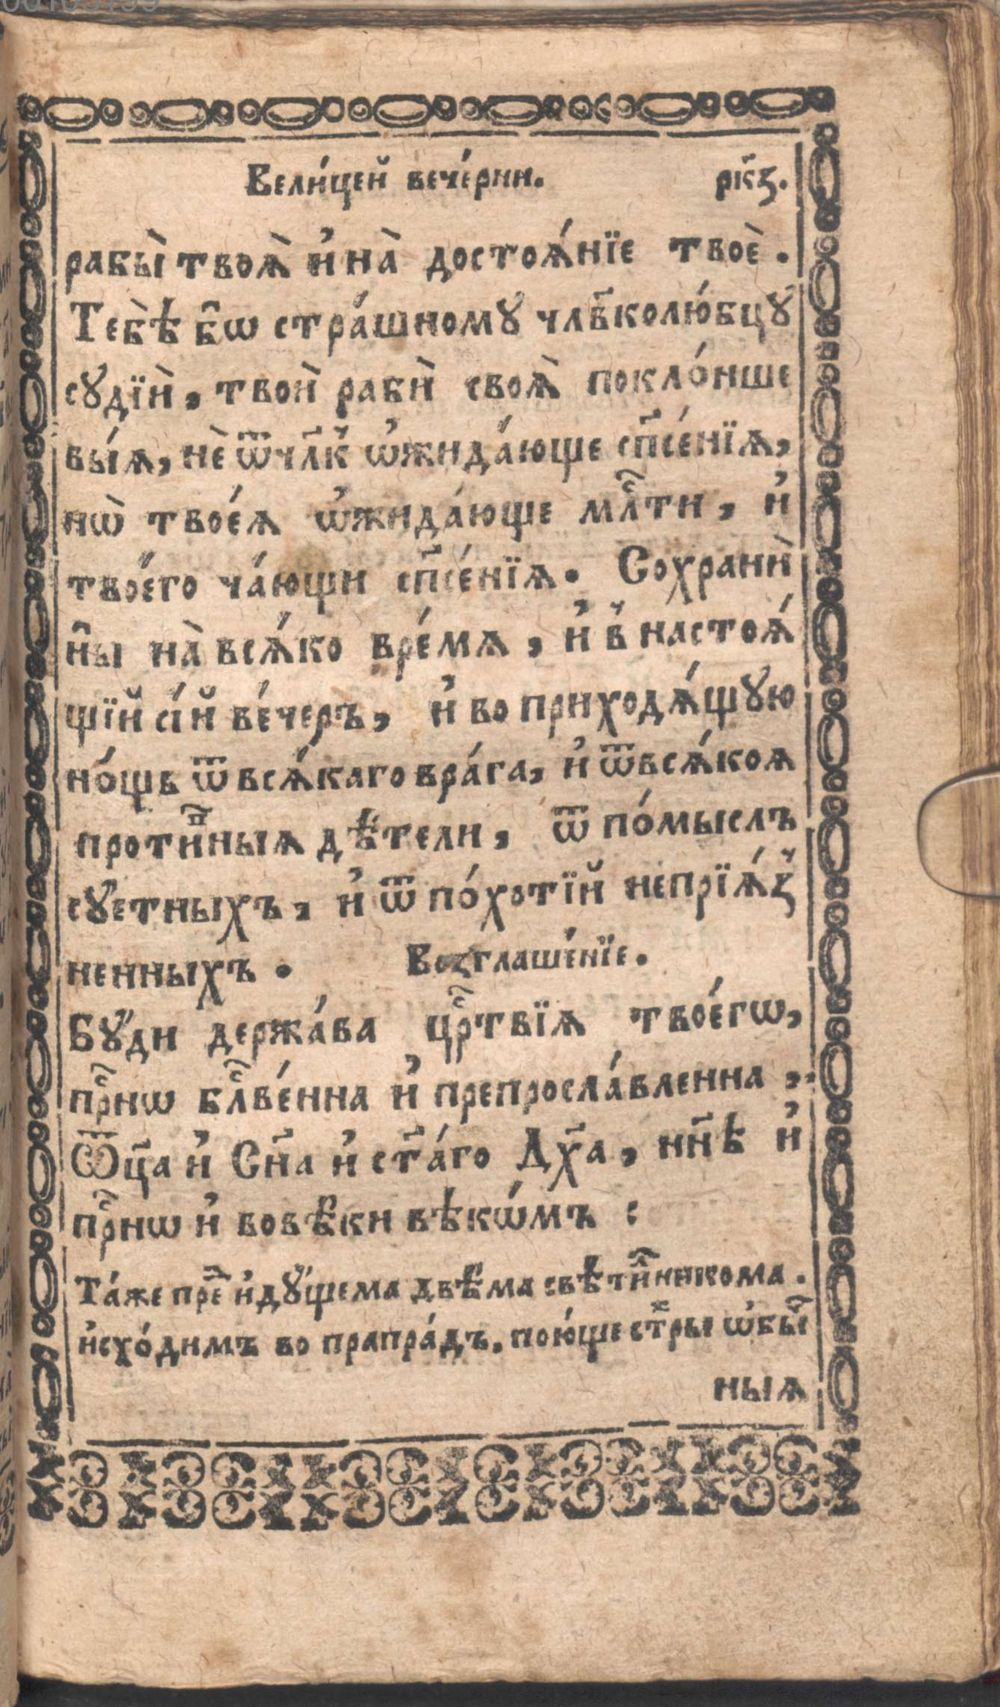 Вели́цей вече́рни. рк҃з.
рабы̀ твоѧ̀ и҆ на̀ достоѧ́нїе твоѐ.
Тебѣ̀ бо҃ страшному члв҃колю́бцу
судїѝ, твоѝ рабѝ своѧ̀ покло́нше
вы́ѧ, нѐ ѿ чл҃к ѡ҆жида́юще сп҃се́нїѧ,
нѡ̀ твоеѧ̀ ѡ҆жида́юще мл҃ти, и҆
твоего̀ ча́ющи сп҃се́нїѧ. Сохранѝ
н҃ы на̀ всѧ́ко вре́мѧ, и҆ в настоѧ́
щїй сі́й ве́черъ, и҆ во приходѧ́щую
но́щь ѿ всѧ́каго вра́га, и҆ ѿ всѧ́коѧ
проти́вныѧ дѣ́тели, ѿ по́мыслъ
суетныхъ, и҆ ѿ по́хотїй непрїѧ́з
ненныхъ. Возглаше́нїе.
Бу́ди держа́ва цр҃твїѧ твоегѡ̀,
пр҃нѡ бл҃ве́нна и҆ препросла́вленна,
Ѿц҃а и҆ Сн҃а и҆ ст҃а́го Дх҃а, нн҃ѣ и҆
пр҃нѡ и҆ вовѣ́ки вѣкѡ́мъ :
Та́же пре҃ и҆ду́щема двѣ́ма свѣти́лникома.
и҆схо́димъ во прапра́дъ. пою́ще ст҃ры ѡ҆бы҃
ныѧ